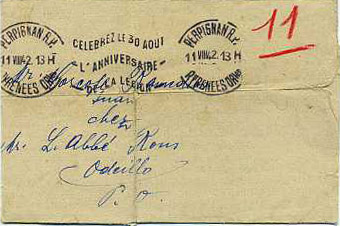 PERPIGNAN R.P.
11 VIII 42. 13 H
PYRENEES ORles
CELEBREZ LE 30 AOUT
"L'ANNIVERSAIRE"
DE LA LEGION
PERPIGNAN R.P.
11 VIII 42. 13 H
PYRENEES ORles
11
Mr.
chez
Mr. L'Abbé Rous
Odeillo
P. O.